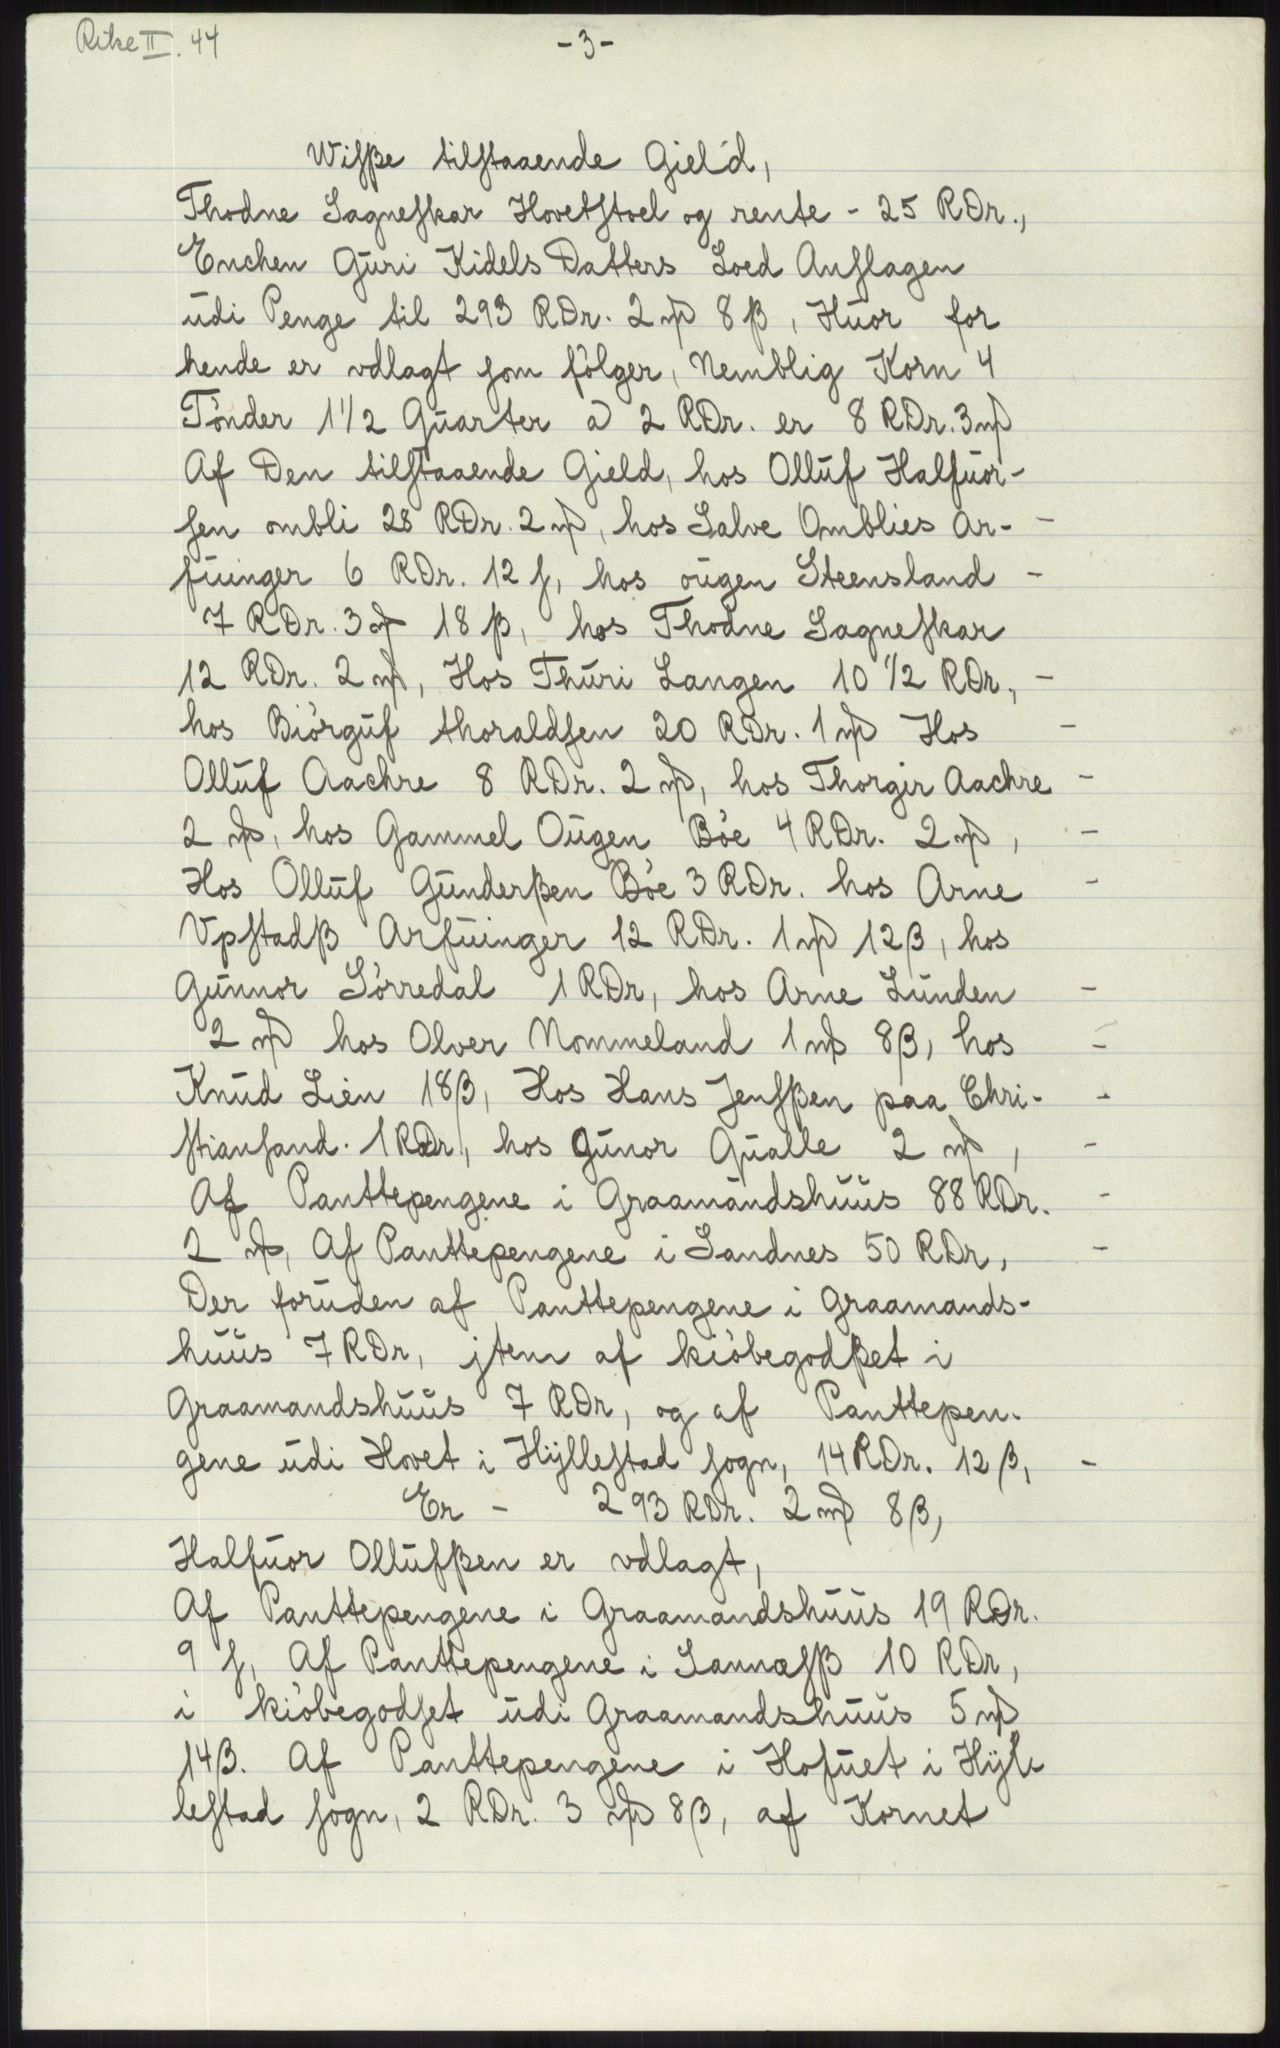 Rike II. 44
- 3 -
Wisße tilstaaende Gield,
Thodne Sagneskar Hovetstoel og rente - 25 RDr.,
Enchen Guri Kidels Datters Loed Anslagen
udi Penge til 293 RDr. 2 mþ 8 β, Huor for
hende er vdlagt som følger, Nemblig Korn 4
Tønder 1 1/2 Quarter a 2 RDr. er 8 RDr. 3 mþ
Af Den tilstaaende Gield, hos Olluf Halfuor-
sen ombli 28 RDr. 2 mþ, hos Salve Omblies Ar- -
fuinger 6 RDr. 12 s, hos ougen Steensland -
7 RDr. 3 mþ 18 β, hos Thodne Sagneskar
12 RDr. 2 mþ, Hos Thuri Langen 10 1/2 RDr., -
hos Biørguf thoraldsen 20 RDr. 1 mþ Hos -
Olluf Aachre 8 RDr. 2 mþ, hos Thorgir Aachre -
2 mþ, hos Gammel Ougen Bøe 4 RDr. 2 mþ, -
Hos Olluf Gunderßen Bøe 3 RDr. hos Arne -
Vpstadß Arfuinger 12 RDr. 1 mþ 12 β, hos
Gunnor Sørredal 1 RDr, hos Arne Lunden -
2 mþ hos Olver Nommeland 1 mþ 8 β, hos -
Knud Lien 18 β, Hos Hans Jensßen paa Chri- -
stiansand. 1 RDr, hos Gunor Qualle 2 mþ, -
Af Panttepengene i Graamandshuus 88 RDr. -
2 mþ, Af Panttepengene i Sandnes 50 RDr, -
Der foruden af Panttepengene i Graamands-
huus 7 RDr, jtem af kiøbegodßet i
Graamandshuus 7 RDr, og af Panttepen-
gene udi Hovet i Hÿllestad sogn, 14 RDr. 12 β, -
Er - 293 RDr. 2 mþ 8 β,
Halfuor Ollufßen er vdlagt,
Af Panttepengene i Graamandshuus 19 RDr.
9 s, Af Panttepengene i Sannæsß 10 RDr,
i kiøbegodset udi Graamandshuus 5 mþ
14 β. Af Panttepengene i Hofuet i Hÿl-
lestad sogn, 2 RDr. 3 mþ 8 β, af Kornet